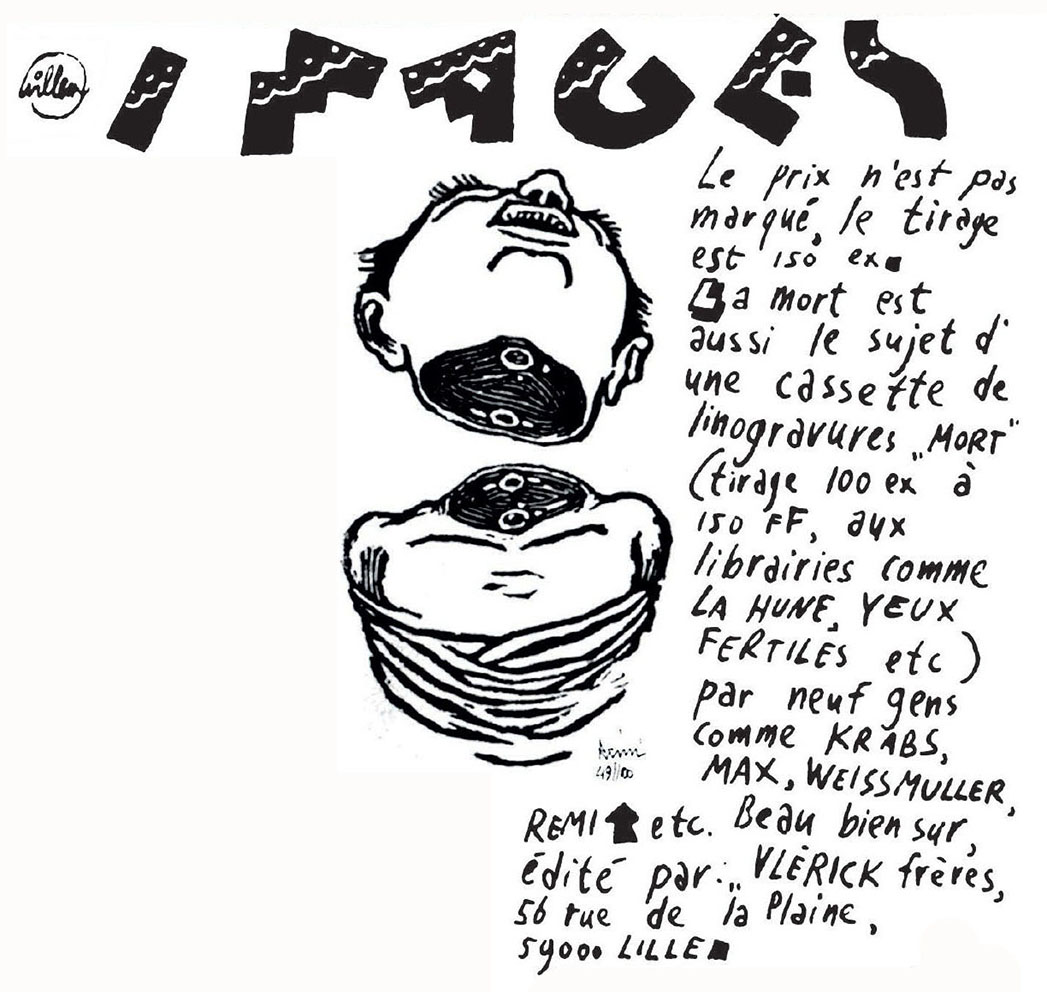 Willem
IMAGES
Le prix n'est pas
marqué, le tirage
est 150 ex.
La mort est
aussi le sujet d'
une cassette de
linogravures „MORT"
(tirage 100 ex à
150 FF, aux
librairies comme
LA HUNE, YEUX
FERTILES etc)
par neuf gens
comme KRABS,
MAX, WEISSMULLER,
REMI etc. Beau bien sur,
édité par: „VLÈRICK frères,
56 rue de la Plaine,
59000 LILLE
Remi
49/100